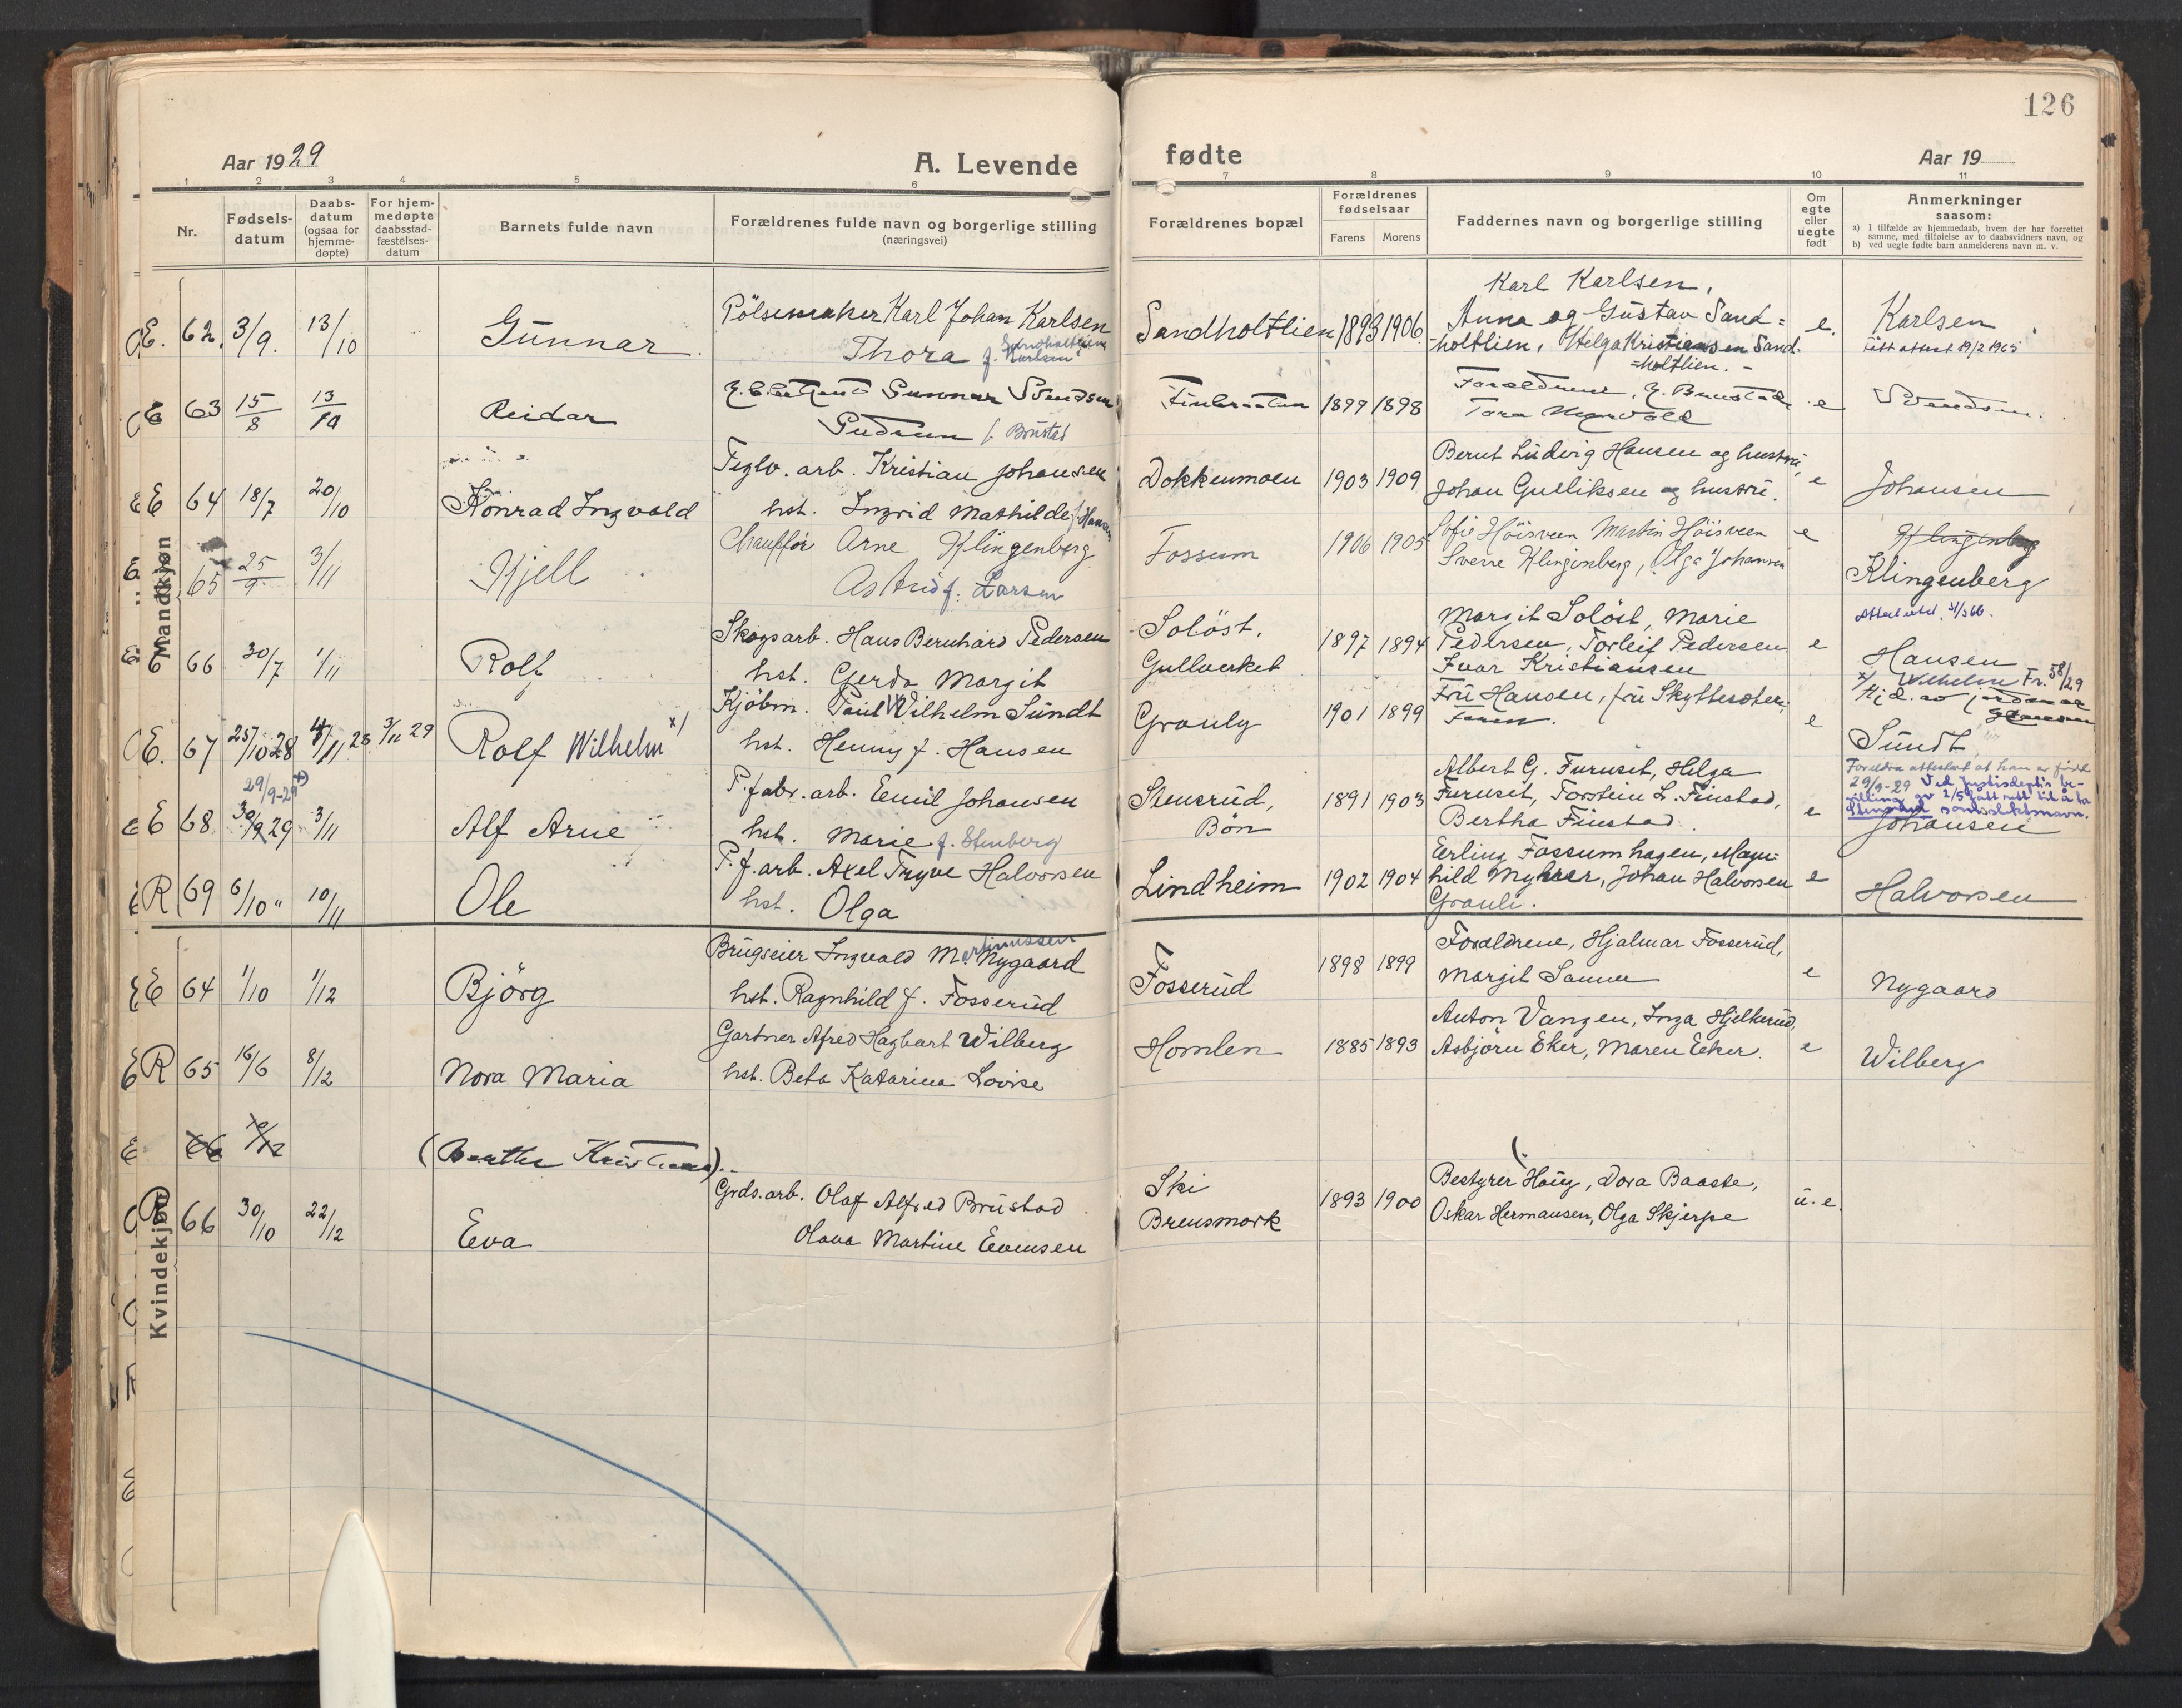 126
Aar 1929
A. Levende
fødte
Aar 19
1 2 3 4 5 6 7 8 9 10 11
Nr.
Fødsels-
datum
Daabs-
datum
(ogsaa for
hjemme-
døpte)
For hjem-
medøpte
daabsstad-
fæstelses-
datum
Barnets fulde navn
Forældrenes fulde navn og borgerlige stilling
(næringsvei)
Forældrenes bopæl
Forældrenes
fødselsaar
Farens Morens
Faddernes navn og borgerlige stilling
Om
egte
eller
uegte
født
Anmerkninger
saasom:
a) I tilfælde av hjemmedaab, hvem der har forrettet
samme, med tilføielse av to daabsvidners navn, og
b) ved uegte fødte barn anmelderens navn m. v.
Mandkjøn
E. 62. 3/9. 13/10 Gunnar.
Pölsemaker Karl Johan Karlsen
Thora f. Karlsen
Sandholtlien 1893 1906
Karl Karlsen,
Anna og Gustav Sand=
holtlien, Helga Kristiansen Sand-
=holtlien. -
e. Karlsen
Fått attest 19/2 1965
E 63 15/8 13/10 Reidar
Gunnar Svendsen
Gudrun f. Brustad
Finbraaten 1899 1898
Forældrene, E. Brustad
Tora
e Svendsen.
E 64 18/7 20/10 Konrad Ingvald
Teglv. arb. Kristian Johansen
hst. Ingrid Mathilde f. Hansen
Dokkenmoen 1903 1909
Bernt Ludvig Hansen og hustru,
Johan Gulliksen og hustru.
e Johansen
E 65 25/9 3/11 Kjell
Chauffør Arne Klingenberg
Astrid f. Larsen
Fossum 1906 1905
Sofie Höisveen Martin Höisveen
Sverre Klingenberg, Olga Johansen
e Klingenberg
Klingenberg
E 66 30/7 1/11 Rolf
Skogsarb. Hans Bernhard Pedersen
hst. Gerda Margit
Solöst,
Gullverket
1897 1894
Margit Solöst, Marie
Pedersen, Torleif Pedersen
Ivar Kristiansen
e Hansen
E. 67 25/10 28 11 28 3/11 29 Rolf Wilhelm x)
Kjöbm. Paul Wilhelm Sundt
hst. Henny f. Hansen
Grouly 1901 1899
Fru Hansen, fru Skyttesæter,
Faren.
e
x) Wilhelm Fr. 58/29
Hjd. av jordmor
Hansen
Sundt
E 68 29/9-29 x) 30/9 29 3/11 Alf Arne
T. fabr. arb. Emil Johansen
hst. Marie f. Stenberg
Stensrud,
Bön
1891 1903
Albert G. Furuset, Helga
Furuset, Torstein L. Finstad,
Bertha Finstad.
e
Foreldra attestert at han er født
29/9-29 Ved Justisdept's be-
villing av 2/5 fått rett til å ta
Stensrud som slektsnavn.
Johansen
R 69 6/10 " 10/11 Ole
T. f. arb. Axel Tryve Halvorsen
hst. Olga
Lindheim 1902 1904
Erling Fossumhagen, Magn=
hild Myhrer, Johan Halvorsen
Grouli.
e Halvorsen
Kvindekjøn
E 64 1/10 1/12 Björg
Brugseier Ingvald Martinussen Nygaard
hst. Ragnhild f. Fosserud
Fosserud 1898 1899
Forældrene, Hjalmar Fosserud,
Margit Sanner
e Nygaard
R 65 16/6 8/12 Nora Maria
Gartner Alfred Hagbart Wilberg
hst. Beta Katarina Lovise
Homlen 1885 1893
Anton Vangen, Inga Hjelkerud,
Asbjörn Eker, Maren Eeker.
e Wilberg
66 (Berthe Kristiane)
R 66 30/10 22/12 Eva
Grds. arb. Olaf Alfred Brustad
Olava Martine Evensen
Ski
Brensmork
1893 1900
Bestyrer Haug, Dora Baaste,
Oskar Hermansen, Olga Skjerpe
u. e.